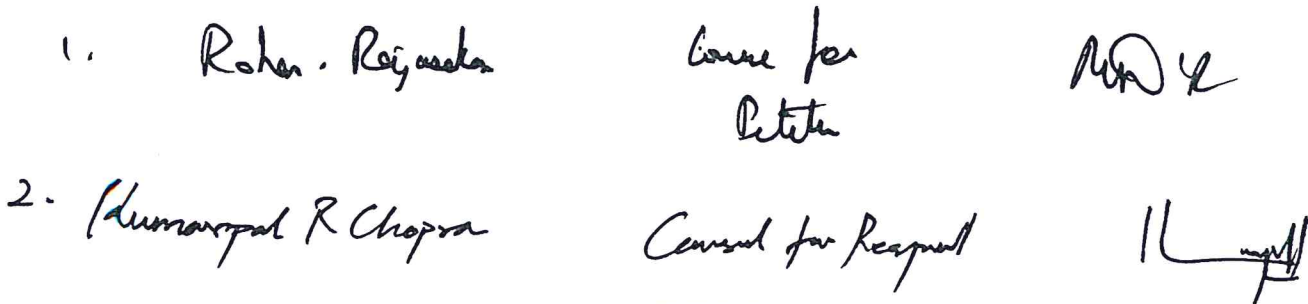 1. Rohan. Rajasekar Counsel for
Petitioner
2. Kumarpal R Chopra Counsel for Respondent